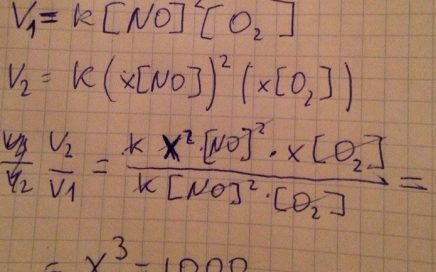 V₁ = k [NO]² [O₂]
V₂ = K (x[NO])² (x[O₂])
V₂/V₁ = k x² · [NO]² · x [O₂] / k [NO]² · [O₂] =
= x³ = 1000